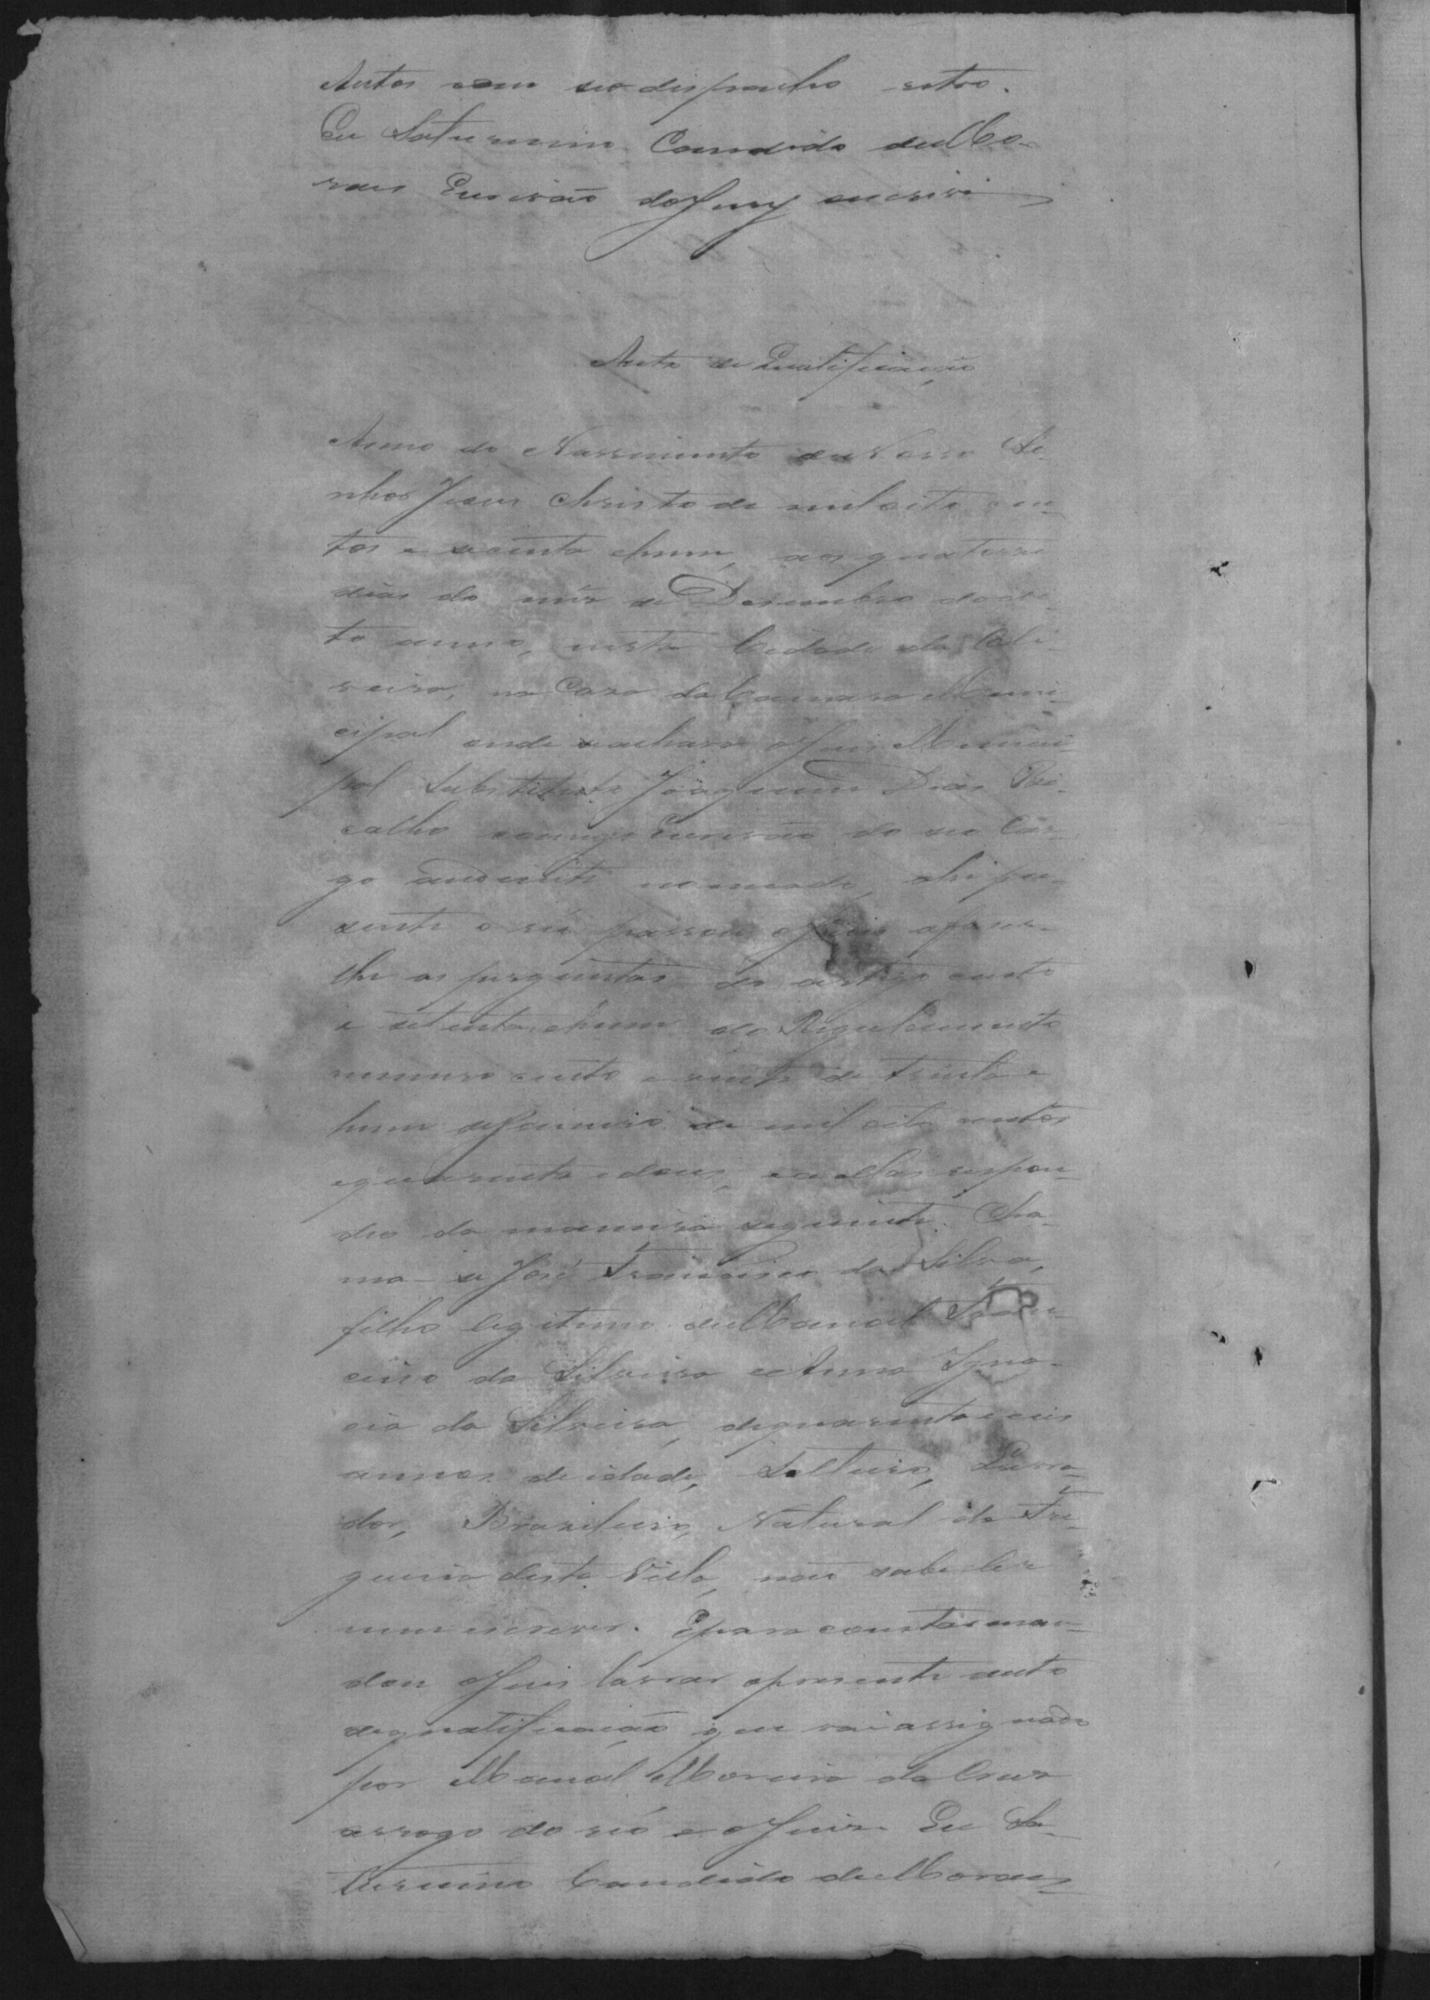 Autos com seo despacho retro.
Eu Saturnino Candido de Mo-
raes Escrivão do Jury escrivi
Auto de Qualificação
Anno do Nascimento de Nosso Se-
nhor Jesus Christo de mil oito cen-
tos e secenta e hum, aos quatorse
dias do mêz de Desembro do di-
to anno, nesta Cidade da
na Casa da Camara Muni-
cipal onde se achava o Juis Munici-
pal Substituto Joaquim Dias Bi-
calho comigo Escrivão do seo Car-
go adiante nomeado, ahi pre-
sente o reó passou o Juis afaser-
lhe as perguntas do artigo cento
e setenta e hum do Regulamento
numero cento e vinte de trinta e
hum de Janeiro de mil oito centos
e quarenta e dous, e a ellas respon-
deo da maneira seguinte. Cha-
ma-se José Francisco da Silva,
filho legitimo de Manoel Fran-
cisco da Silveira e Anna Igna-
cia da Silveira, de quarenta e seis
annos de idade, Solteiro, Lavra-
dor, Brasileiro, Natural da Fre-
guesia desta Villa, não sabe ler
nem escrever. E para constar man-
dou o Juis lavrar o presente auto
de qualificação que vai assignado
por Manoel Moreira da Cruz
arrogo do reó e o Juis. Eu Sa-
turnino Candido de Moraes